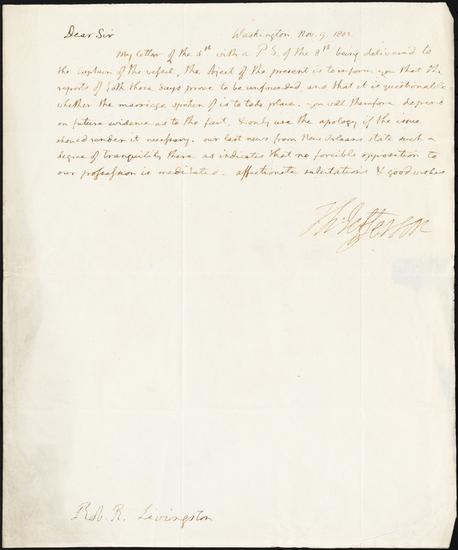 Dear Sir Washington Nov. 9. 1803
My letter of the 5th with a P.S. of the 8th being delivered to
the Captain of the vessel, the object of the present is to inform you that the
reports of both those days prove to be unfounded, and that it is questionable
whether the marriage spoken of is to take place. you will therefore depend
on future evidence as to the fact, & only use the apology if the issue
should render it necessary. our last news from New Orleans state such a
degree of tranquility there as indicates that no forcible opposition to
our possession is meditated. affectionate salutations & good wishes
Th: Jefferson
Rob. R. Livingston